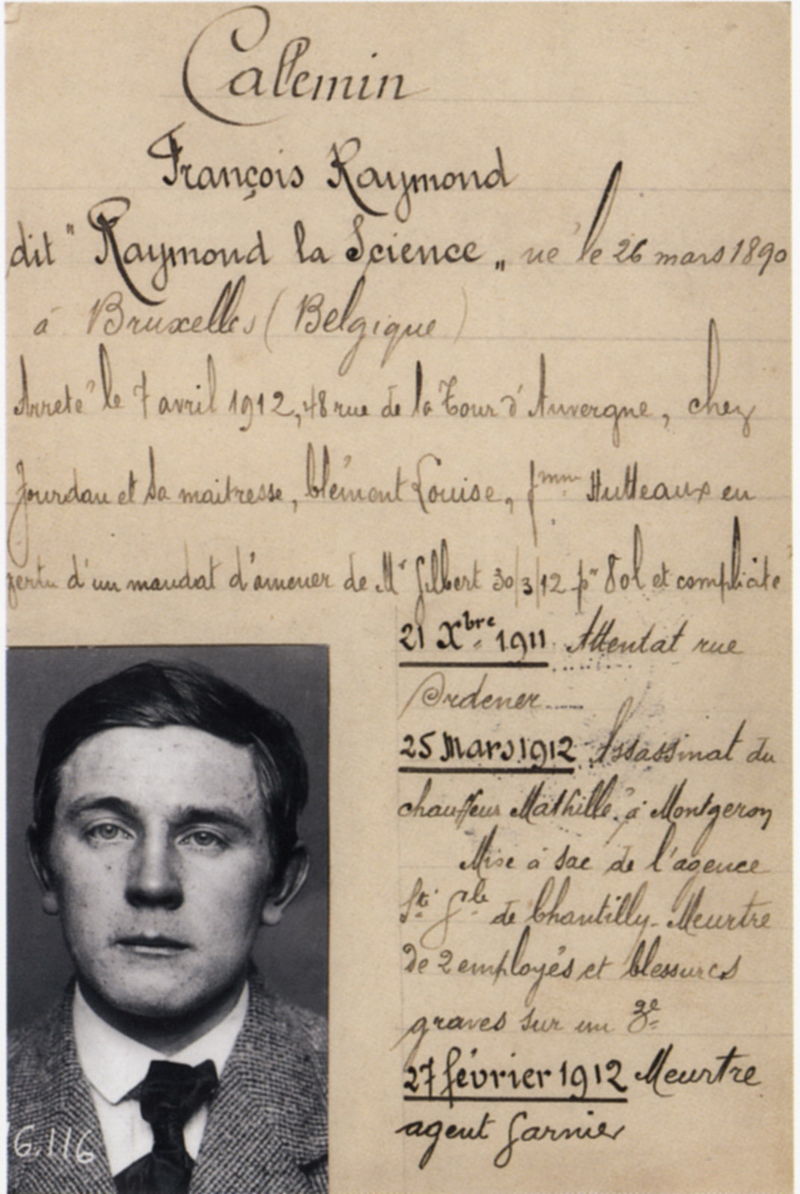 Callemin
François Raymond
dit " Raymond la Science „ né le 26 mars 1890
à Bruxelles (Belgique)
Arrêté le 7 avril 1912, 48 rue de la Tour d'Auvergne, chez
Jourdan et sa maitresse, Clément Louise, fmme Hutteaux en
vertu d'un mandat d'amener de Mr Gilbert 30/3/12 pr Vol et complicité
21 Xbre 1911 Attentat rue
Ordener
25 Mars 1912 Assassinat du
chauffeur Mathillé à Montgeron
Mise à sac de l'agence
Sté Gale de Chantilly - Meurtre
de 2 employés et blessures
graves sur un 3e
27 février 1912 Meurtre
agent Garnier
6.116